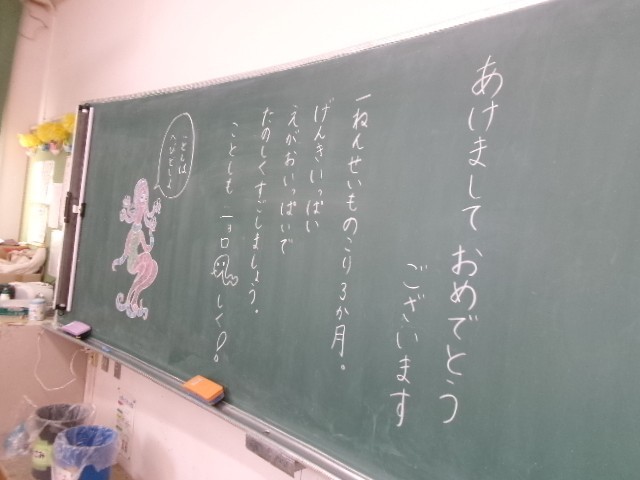 あけましておめでとう
ございます
一ねんせいものこり3か月。
げんきいっぱい
えがおいっぱいで
たのしくすごしましょう。
ことしもニョロしく!
ことしは
へびどしよ